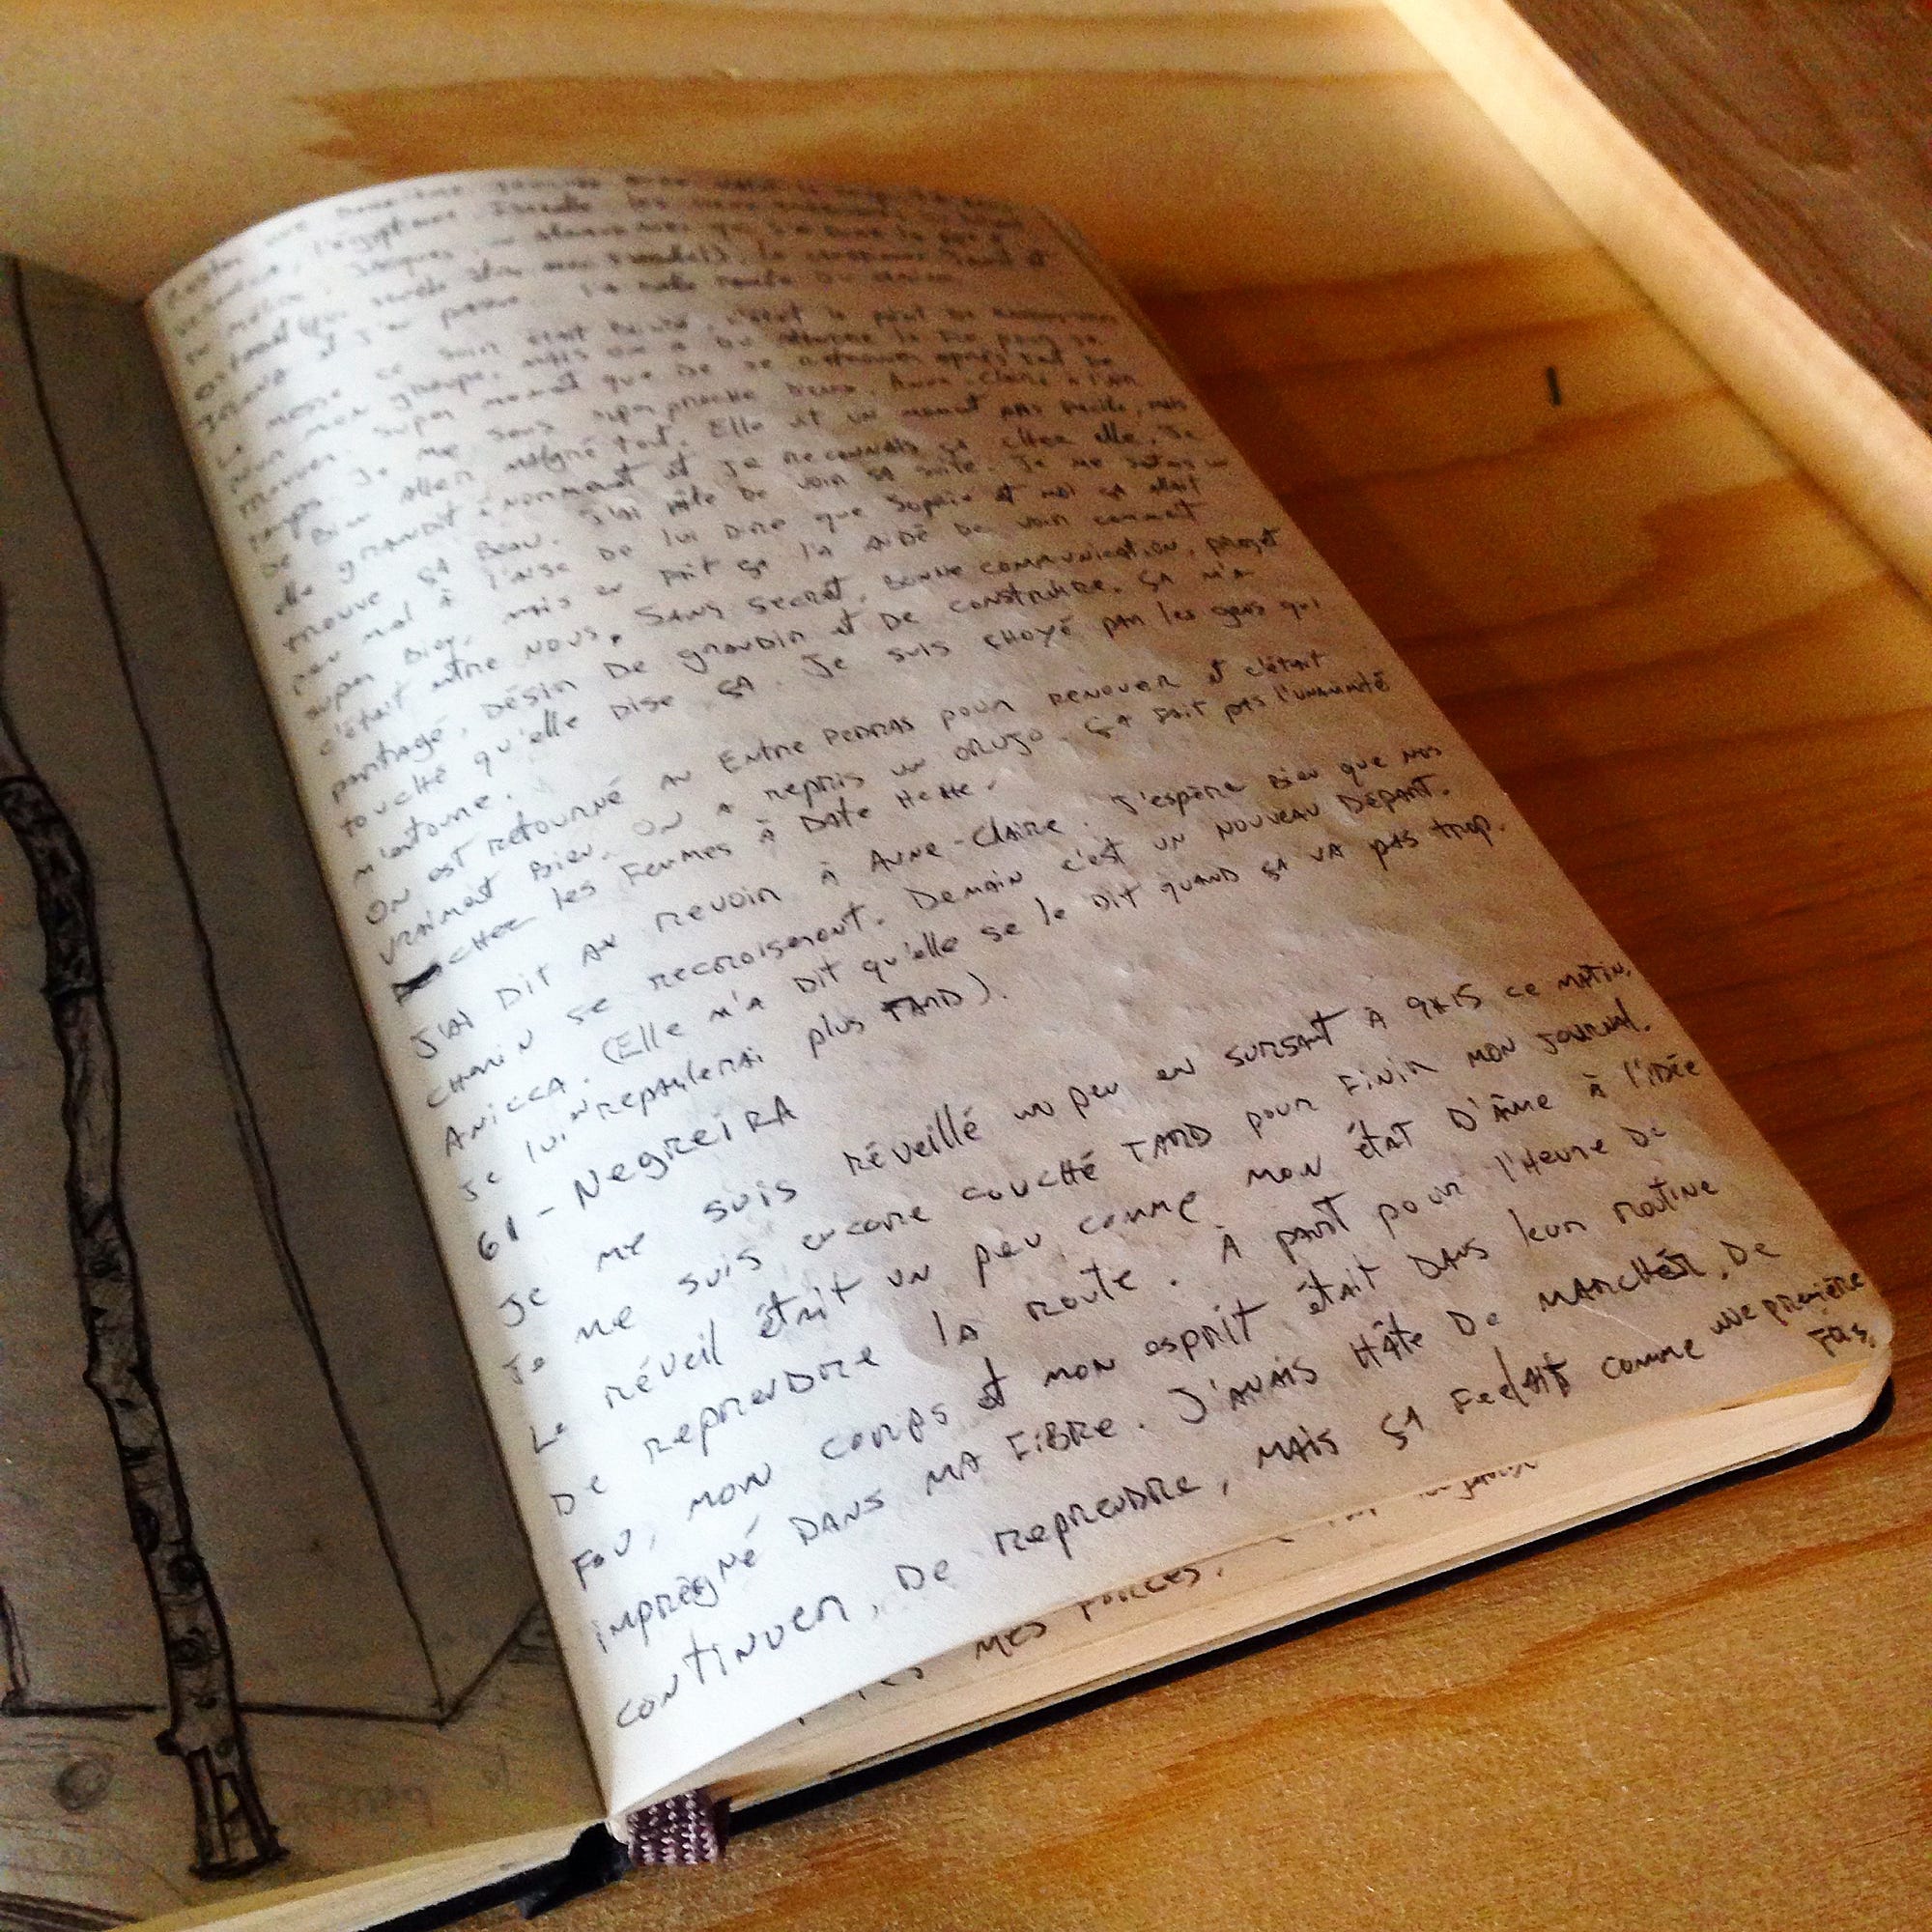 La messe ce soir était
pour mon groupe. mais on a du
trouver. super moment que de se retrouver après tant de
temps. Je me sens super proche d'eux. Anne-Claire a l'air
de bien aller malgré tout. Elle vit un moment pas facile, mais
elle grandit énormément et je reconnais ça chez elle. Je
trouve ça beau. J'ai hâte de voir sa suite. Je me sentais un
peu mal à l'aise de lui dire que Sophie et moi ça allait
super bien, mais en fait ça l'a aidé de voir comment
c'était entre nous. Sans secret, bonne communication, projet
partagé, désir de grandir et de construire. Ça m'a
touché qu'elle dise ça. Je suis choyé par les gens qui
m'entoure.
On est retourné au Entre Pedras pour renouer et c'était
vraiment bien. On a repris un orujo. Ça fait pas l'unanimité
chez les femmes à date hehe.
J'ai dit au revoir à Anne-Claire. J'espère bien que nos
chemin se recroiseront. Demain c'est un nouveau départ.
Anicca. (Elle m'a dit qu'elle se le dit quand ça va pas trop.
Je lui reparlerai plus tard).
61 - Negreira
Je me suis réveillé un peu en sursaut à 9h15 ce matin.
Je me suis encore couché tard pour finir mon journal.
Le réveil était un peu comme mon état d'âme à l'idée
de reprendre la route. À part pour l'heure de
fou, mon corps et mon esprit était dans leur routine
imprégné dans ma fibre. J'avais hâte de marcher, de
continuer, de reprendre, mais ça feelait comme une première
fois.
mes forces.